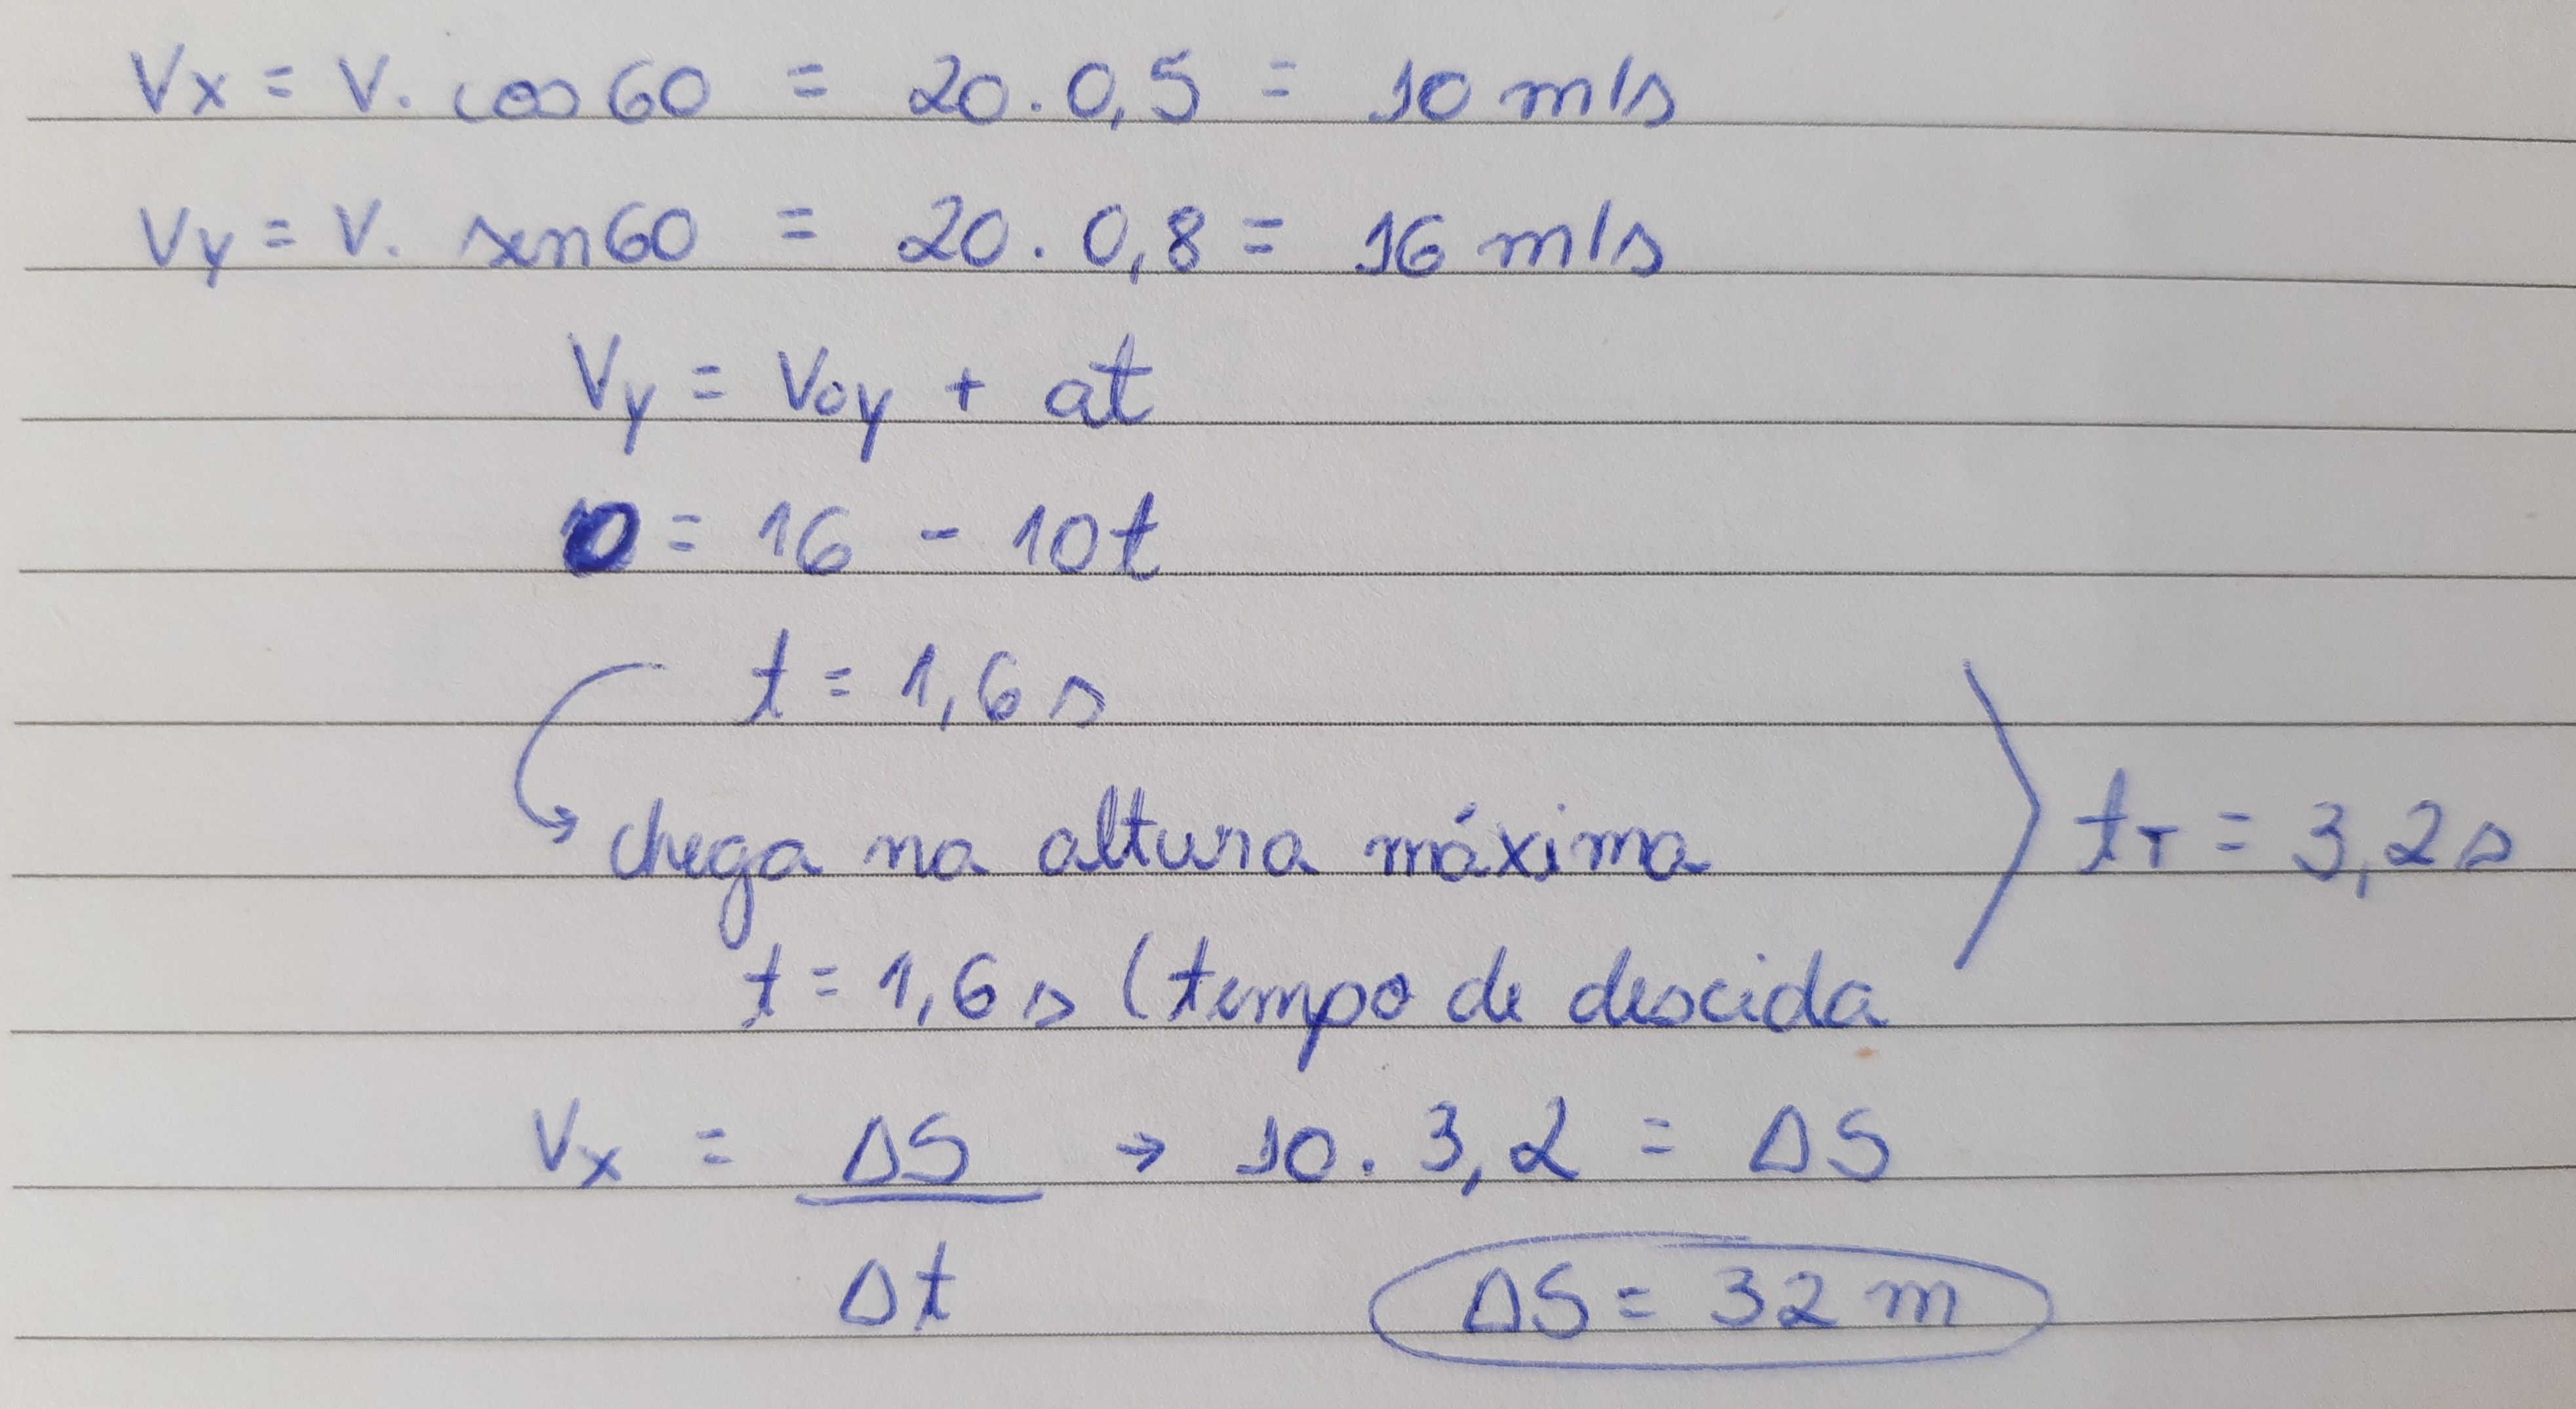 Vx = V. cos 60 = 20. 0,5 = 10 m/s
Vy = V. sen 60 = 20. 0,8 = 16 m/s
Vy = Voy + at
0 = 16 - 10t
t = 1,6 s
chega na altura máxima
tT = 3,2 s
t = 1,6 s (tempo de descida
Vx = ΔS / Δt → 10. 3,2 = ΔS
ΔS = 32 m